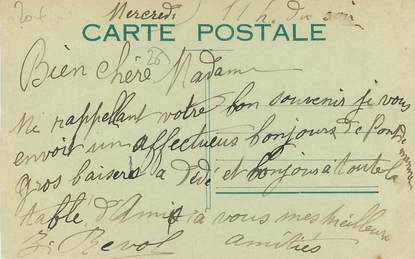 20f
Mercredi 11 h. du soir
CARTE POSTALE
25
Bien chère Madame
Me rappellant votre bon souvenir je vous
envoir un affectueux bonjours de Pont
gros baisers a Dédé et bonjours à toute la
table d'Amis à vous mes meilleurs
amitiés